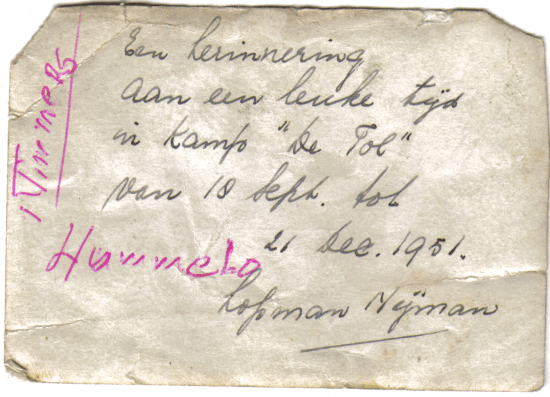 Een herinnering
aan een leuke tijd
in Kamp "De Tol"
van 18 Sept. tot
21 Dec. 1951.
Hopman Nijman
Hummelo
Timmers